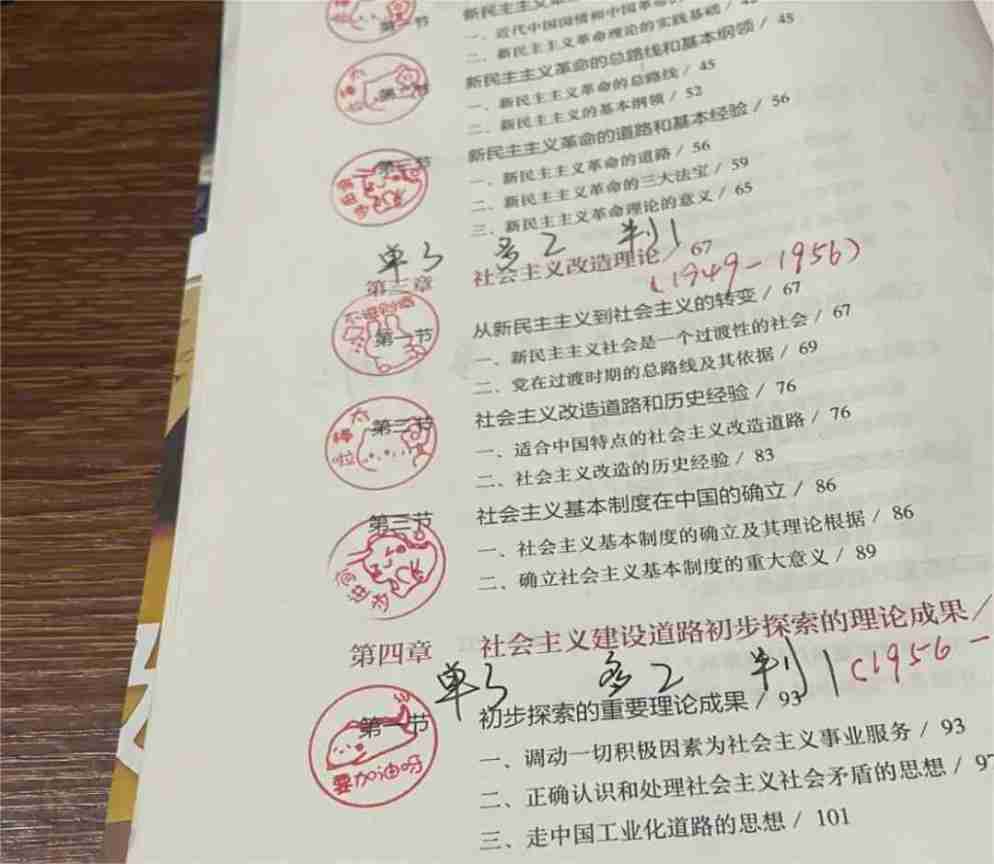 第一节
一、近代中国国情和中国革命
二、新民主主义革命理论的实践基础 /
太棒啦
第二节 新民主主义革命的总路线和基本纲领 / 45
一、新民主主义革命的总路线 / 45
二、新民主主义的基本纲领 / 52
第三节 新民主主义革命的道路和基本经验 / 56
一、新民主主义革命的道路 / 56
二、新民主主义革命的三大法宝 / 59
三、新民主主义革命理论的意义 / 65
单3 多2 判1
第三章 社会主义改造理论 / 67
(1949-1956)
第一节 从新民主主义到社会主义的转变 / 67
一、新民主主义社会是一个过渡性的社会 / 67
二、党在过渡时期的总路线及其依据 / 69
太棒啦
第二节 社会主义改造道路和历史经验 / 76
一、适合中国特点的社会主义改造道路 / 76
二、社会主义改造的历史经验 / 83
第三节 社会主义基本制度在中国的确立 / 86
一、社会主义基本制度的确立及其理论根据 / 86
二、确立社会主义基本制度的重大意义 / 89
第四章 社会主义建设道路初步探索的理论成果 /
单3 多2 判1 (1956-
第一节 初步探索的重要理论成果 / 93
要加油呀
一、调动一切积极因素为社会主义事业服务 / 93
二、正确认识和处理社会主义社会矛盾的思想 / 97
三、走中国工业化道路的思想 / 101